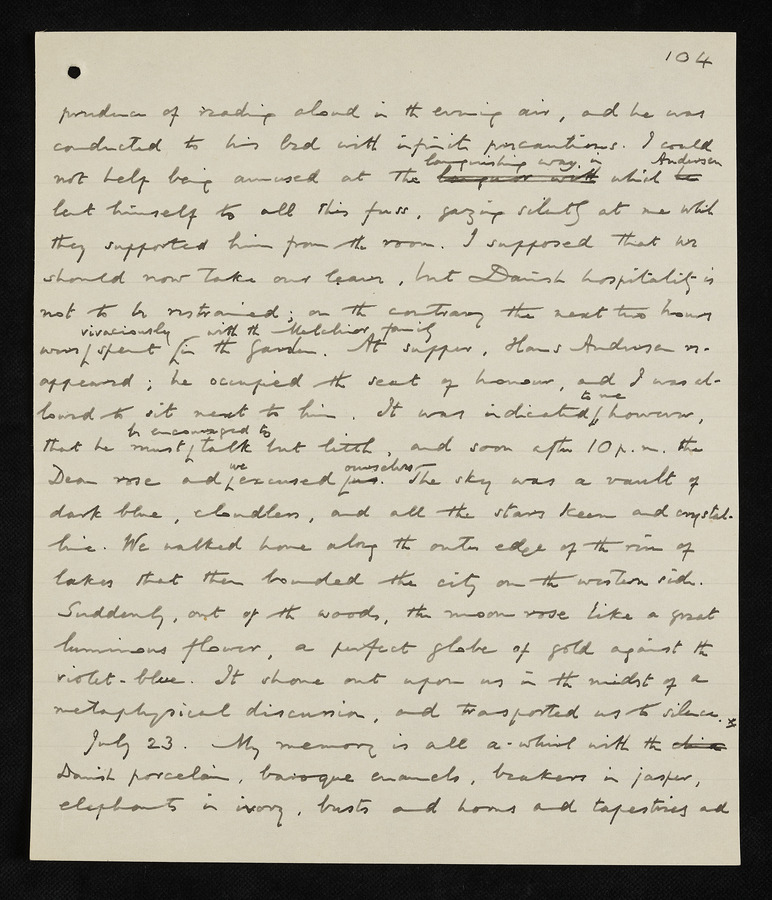 104
prudence of reading aloud in the evening air, and he was
conducted to his bed with infinite precautions. I could
languishing way in Andersen
not help being amused at the languor with which he
lent himself to all this fuss, gazing silently at me while
they supported him from the room. I supposed that we
should now take our leave, but Danish hospitality is
not to be restrained; on the contrary the next two hours
vivaciously with the Melchior family
were spent in the garden. At supper, Hans Andersen re-
appeared; he occupied the seat of honour, and I was al-
to me
lowed to sit next to him. It was indicated, however,
be encouraged to
that he must talk but little, and soon after 10 p.m. the
we ourselves
Dean rose and excused us. The sky was a vault of
dark blue, cloudless, and all the stars keen and crystal-
line. We walked home along the outer edge of the rim of
lakes that then bounded the city on the western side.
Suddenly, out of the woods, the moon rose like a great
luminous flower, a perfect globe of gold against the
violet-blue. It shone out upon us in the midst of a
metaphysical discussion, and transported us to silence. x
July 23. My memory is all a-whirl with the
Danish porcelain, baroque enamels, beakers in jasper,
elephants in ivory, busts and horns and tapestries and